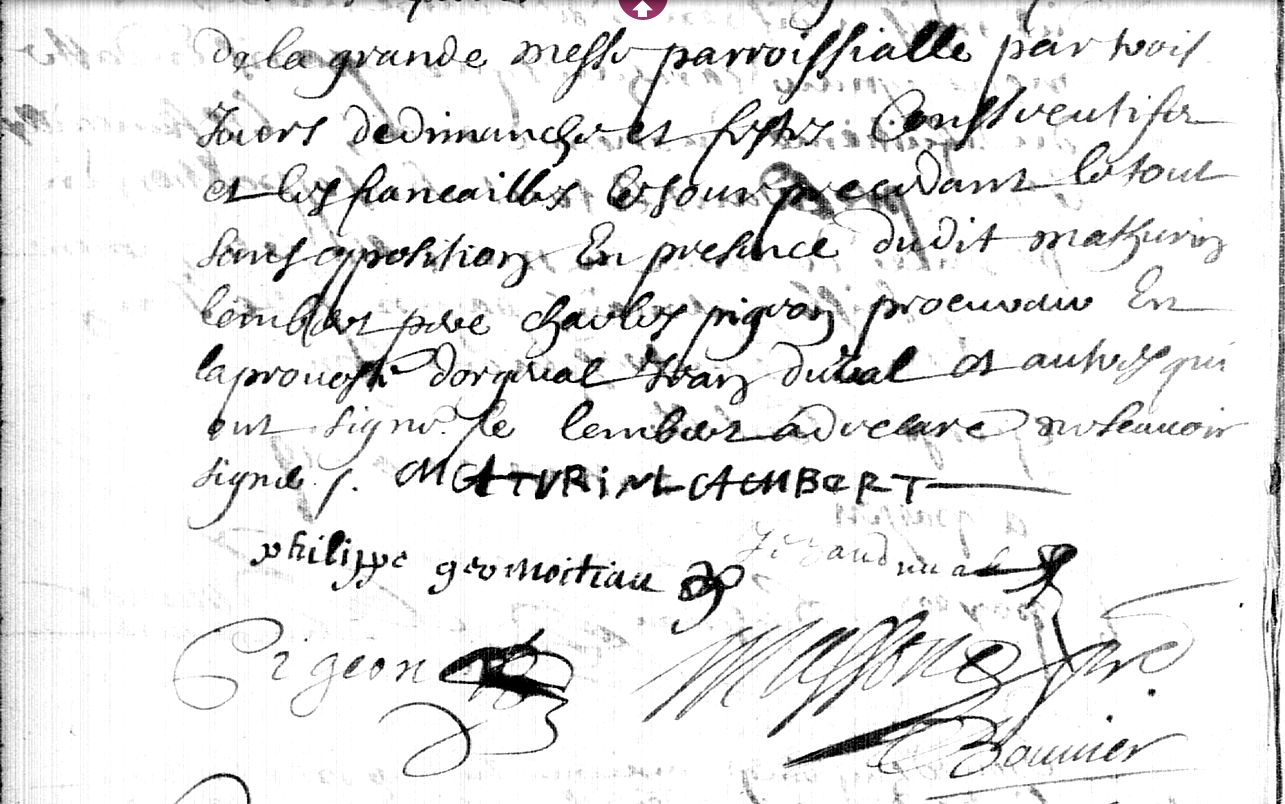 de la grande messe parroissialle par trois
Jours de dimanche et festes Consecutifes
et les fiancailles le Jour precedant le tout
sans opposition En presence dudit mathurin
lembert pere charles pigeon procureur En
la prouosté dorgeual Jean duual et autres qui
ont signé le lembert a declaré ne scauoir
signé /.
MATURIN LAMBERT
philippe gromoitiau
Jehan duual
Pigeon
Masson
Bouuier